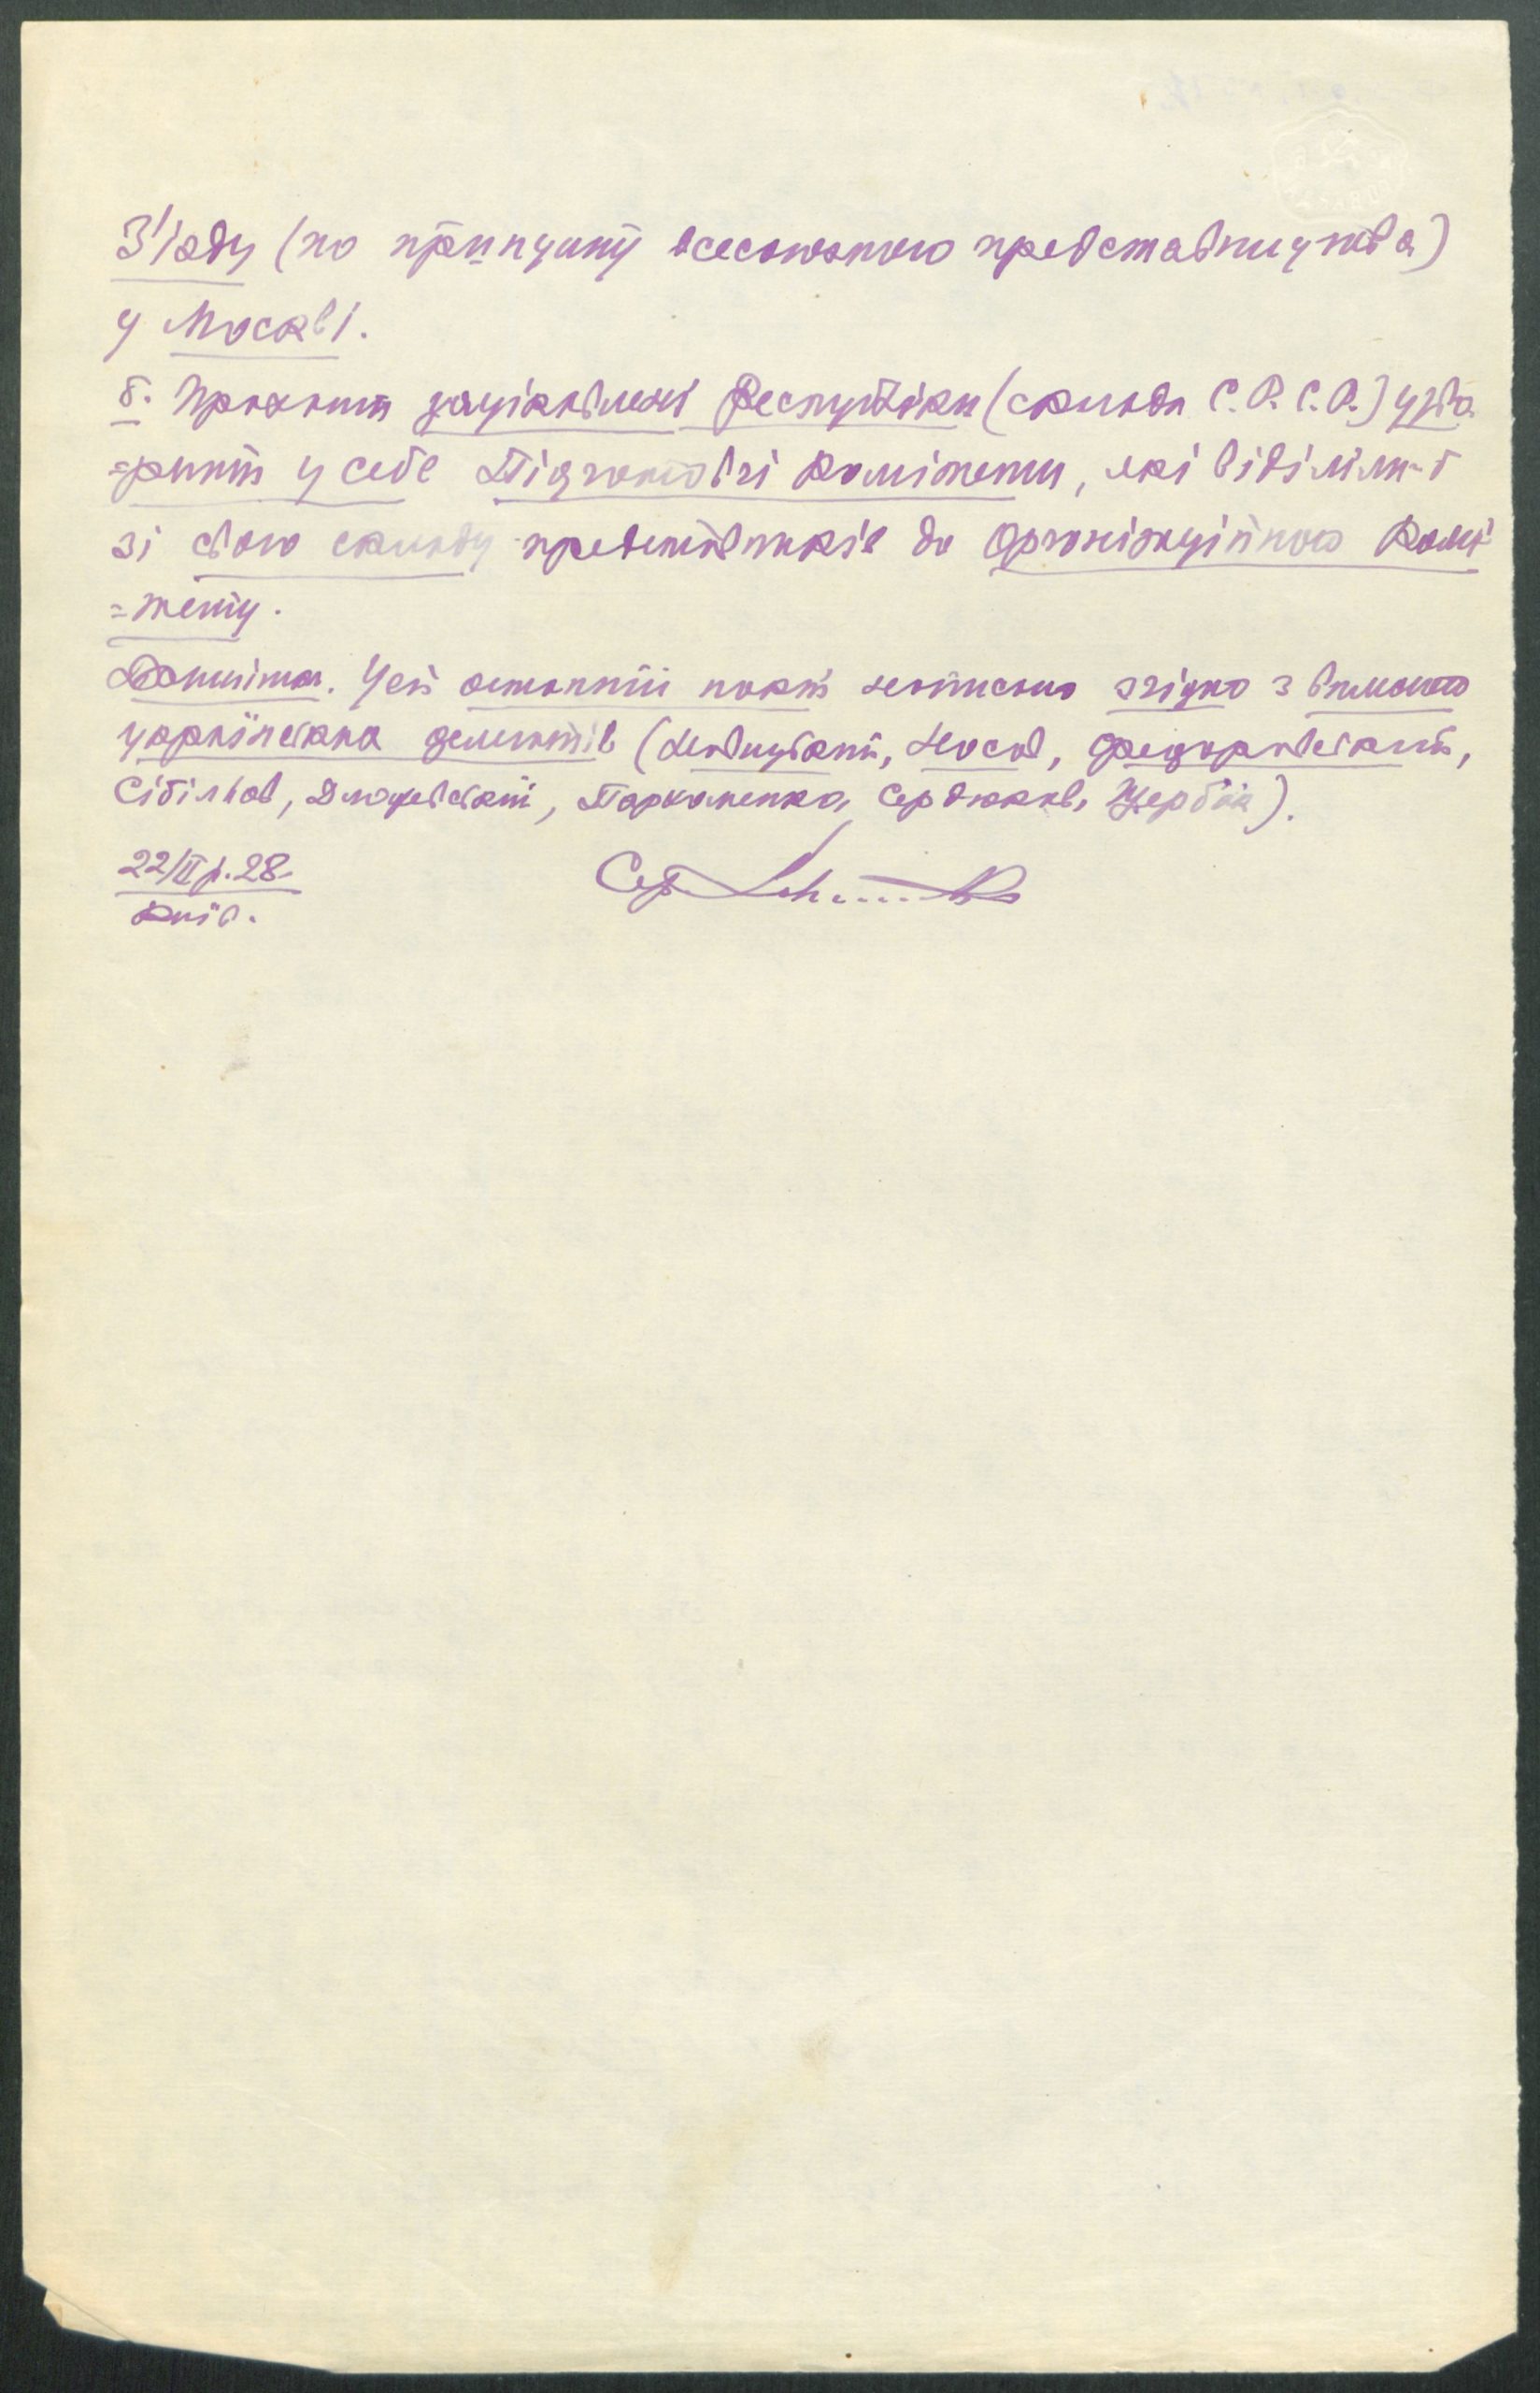 З'їзду (по принципу всесоюзного представництва)
у Москві.
б. Прохати зацікавлені Республіки (склада С.Р.С.Р.) утво
=рити у себе Підготовчі Комітети, які виділили-б
зі свого складу представників до Організаційного Комі
=тету.
Помітка. Цей останній пункт написано згідно з вимогою
українських делегатів (Левицький, Носов, Федоровський,
Сібільов, Дложевський, Пархоменко, Сердюков, Щербак).
22/II р. 28.
Київ.